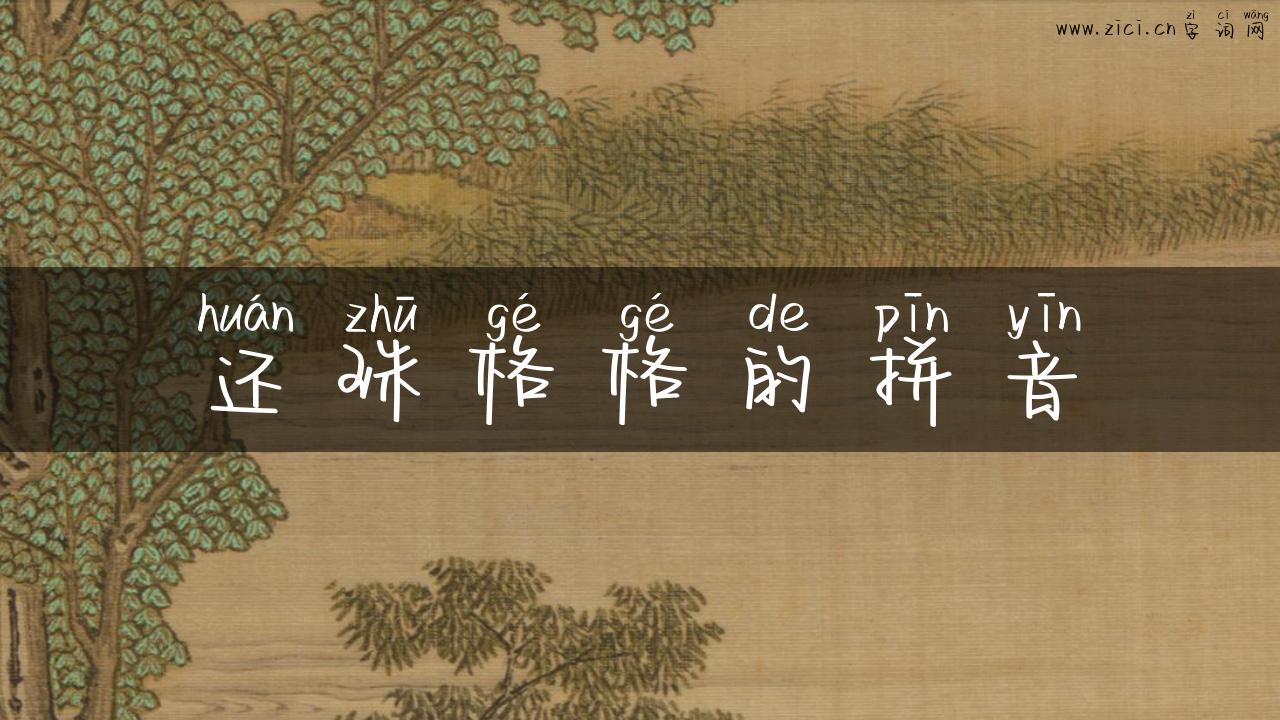 zì cí wǎng
www.zici.cn 字词网
huán zhū gé gé de pīn yīn
还珠格格的拼音